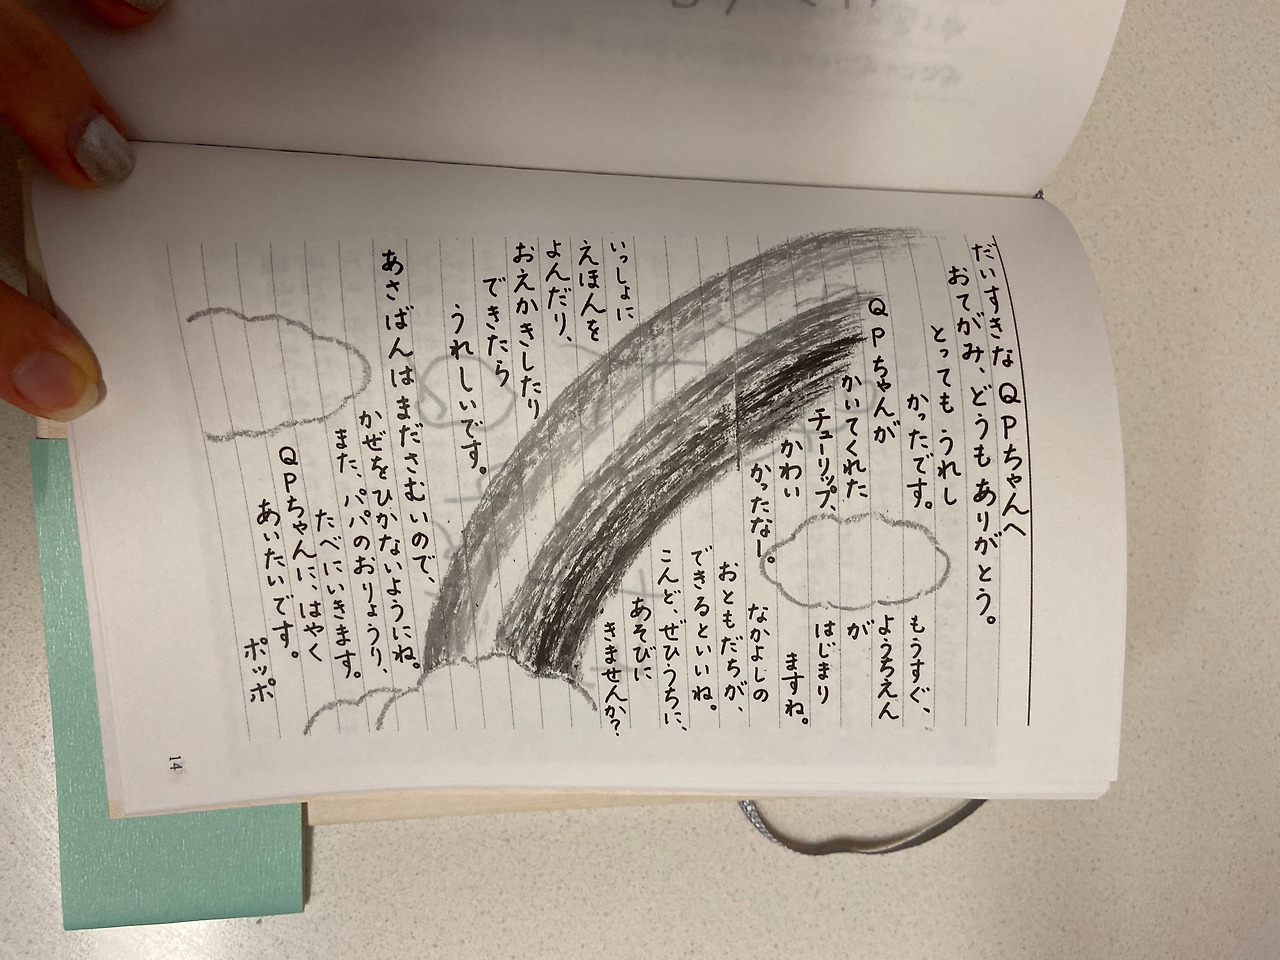 だいすきなQPちゃんへ
おてがみ、どうもありがとう。
とっても うれし
かったです。
QPちゃんが
かいてくれた
チューリップ、
かわい
かったなー。
もうすぐ、
ようちえん
が
はじまり
ますね。
なかよしの
おともだちが、
できるといいね。
こんど、ぜひうちに、
あそびに
きませんか?
いっしょに
えほんを
よんだり、
おえかきしたり
できたら
うれしいです。
あさばんはまださむいので、
かぜをひかないようにね。
また、パパのおりょうり、
たべにいきます。
QPちゃんに、はやく
あいたいです。
ポッポ
14